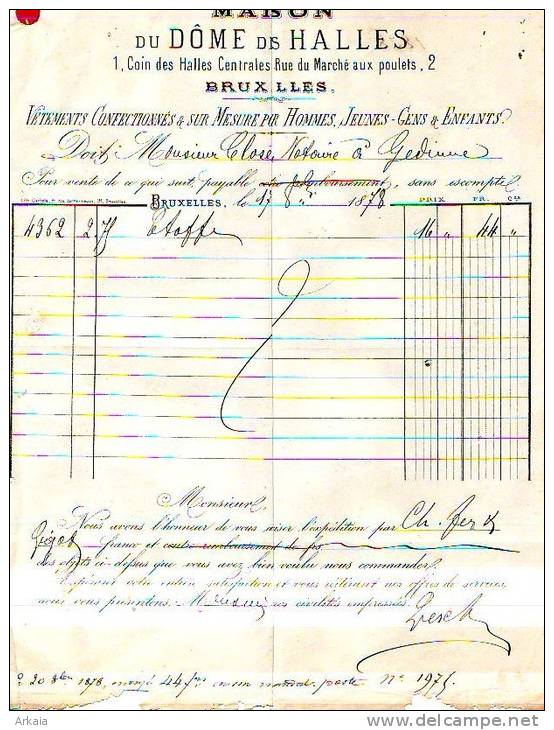 MAISON
DU DÔME DS HALLES
1, Coin des Halles Centrales Rue du Marché aux poulets, 2
BRUX LLES.
VÊTEMENTS CONFECTIONNÉS & SUR MESURE POR HOMMES, JEUNES-GENS & ENFANTS.
Doit Monsieur Close, Notaire à Gedinne
Pour vente de ce qui suit, payable contre remboursement, sans escompte
BRUXELLES, le 17 8 1878 PRIX FR. Cms
4362 2.75 Etoffe 16 " 44 "
Monsieur
Nous avons l'honneur de vous aviser l'expédition par Ch. fer
franco et contre remboursement de frs
des objets ci-dessus que vous avez bien voulu nous commander
Espérant votre entière satisfaction et vous réitérant nos offres de services
nous vous présentons, Monsieur nos civilités empressées.
20 8bre 1878, 44 frs en un mandat-poste N° 1975
Arkaia
www.delcampe.net